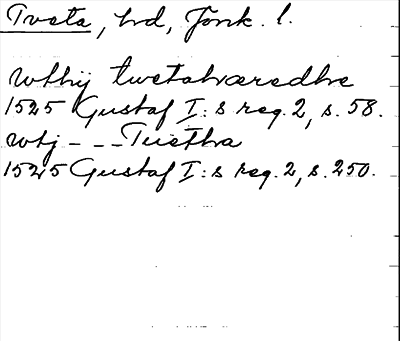 Tveta, hd, Jönk. l.
wthij twetahæredhe
1525 Gustaf I:s reg. 2, s. 58.
wtj - - - Tuetha
1525 Gustaf I:s reg. 2, s. 250.